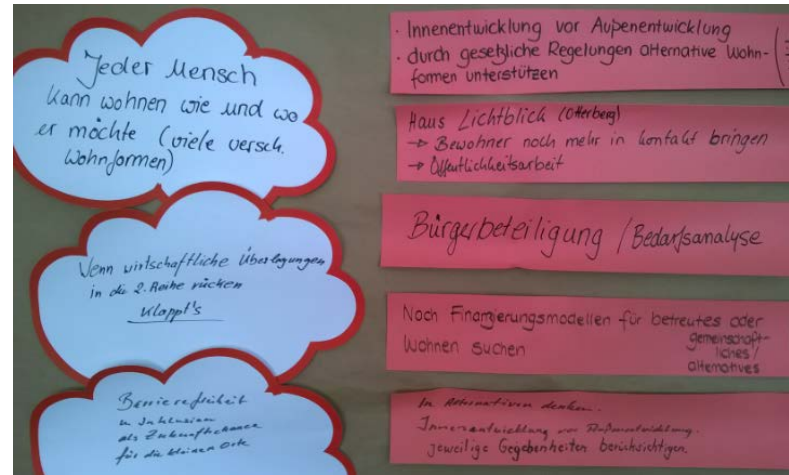 Jeder Mensch
kann wohnen wie und wo
er möchte (viele versch.
Wohnformen)
Wenn wirtschaftliche Überlegungen
in die 2. Reihe rücken
Klappt's
Barrierefreiheit
u Inklusion
als Zukunftschance
für die kleinen Orte
· Innenentwicklung vor Außenentwicklung
· durch gesetzliche Regelungen alternative Wohn-
formen unterstützen
Haus Lichtblick (Otterberg)
→ Bewohner noch mehr in Kontakt bringen
→ Öffentlichkeitsarbeit
Bürgerbeteiligung / Bedarfsanalyse
Nach Finanzierungsmodellen für betreutes oder
Wohnen suchen gemeinschaft-
liches/
alternatives
In Alternativen denken.
Innenentwicklung vor Außenentwicklung.
jeweilige Gegebenheiten berücksichtigen.